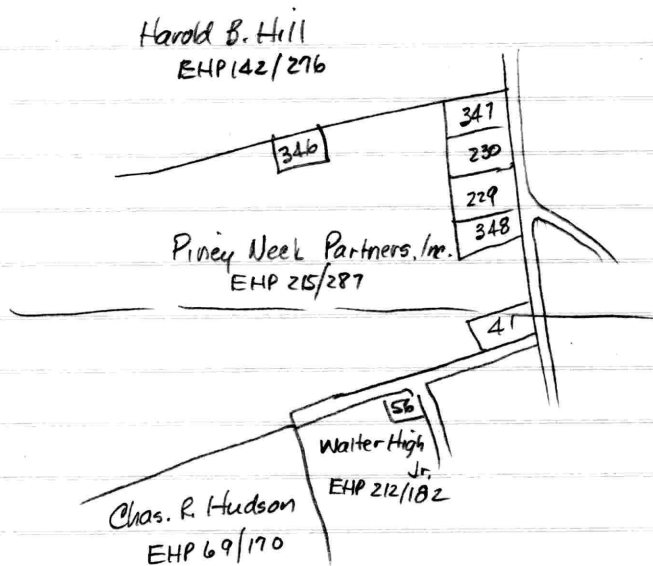 Harold B. Hill
EHP 142/276
347
346
230
229
348
Piney Neck Partners, Inc.
EHP 215/287
41
56
Walter High
Jr.
EHP 212/182
Chas. R. Hudson
EHP 69/170